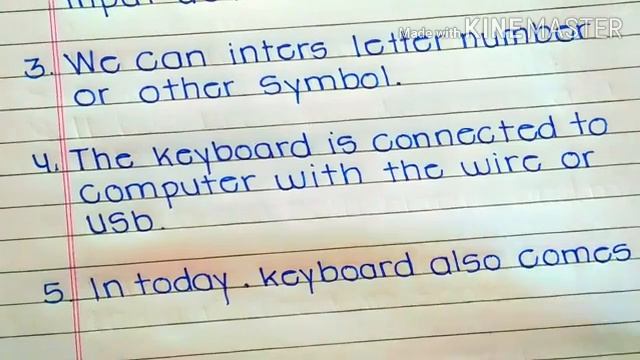 input
Made with KINEMASTER
3. We can inters letter number
or other symbol.
4. The keyboard is connected to
computer with the wire or
usb.
5. In today. keyboard also comes